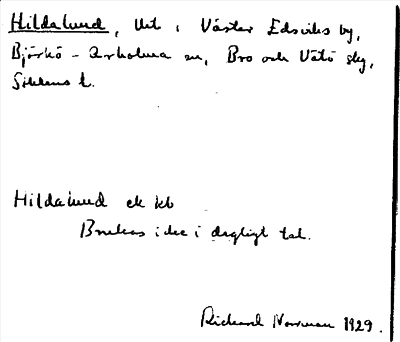 Hildalund, Ut i Väster Edsviks by,
Björkö-Arholma sn, Bro och Vätö skg,
Sjuhundra
Hildalund ek kb
Brukas icke i dagligt tal.
Richard Norrman 1929.